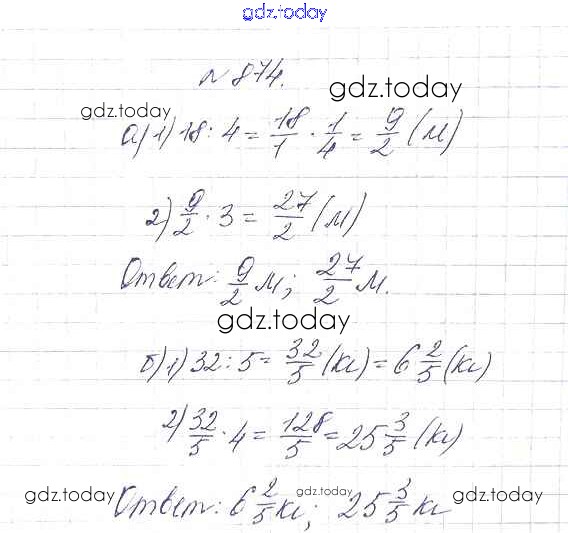 gdz.today
№ 874.
gdz.today
gdz.today
а) 1) 18 : 4 = 18/1 · 1/4 = 9/2 (м)
2) 9/2 · 3 = 27/2 (м)
Ответ: 9/2 м; 27/2 м.
gdz.today
б) 1) 32 : 5 = 32/5 (кг) = 6 2/5 (кг)
2) 32/5 · 4 = 128/5 = 25 3/5 (кг)
Ответ: 6 2/5 кг; 25 3/5 кг
gdz.today
gdz.today
gdz.today